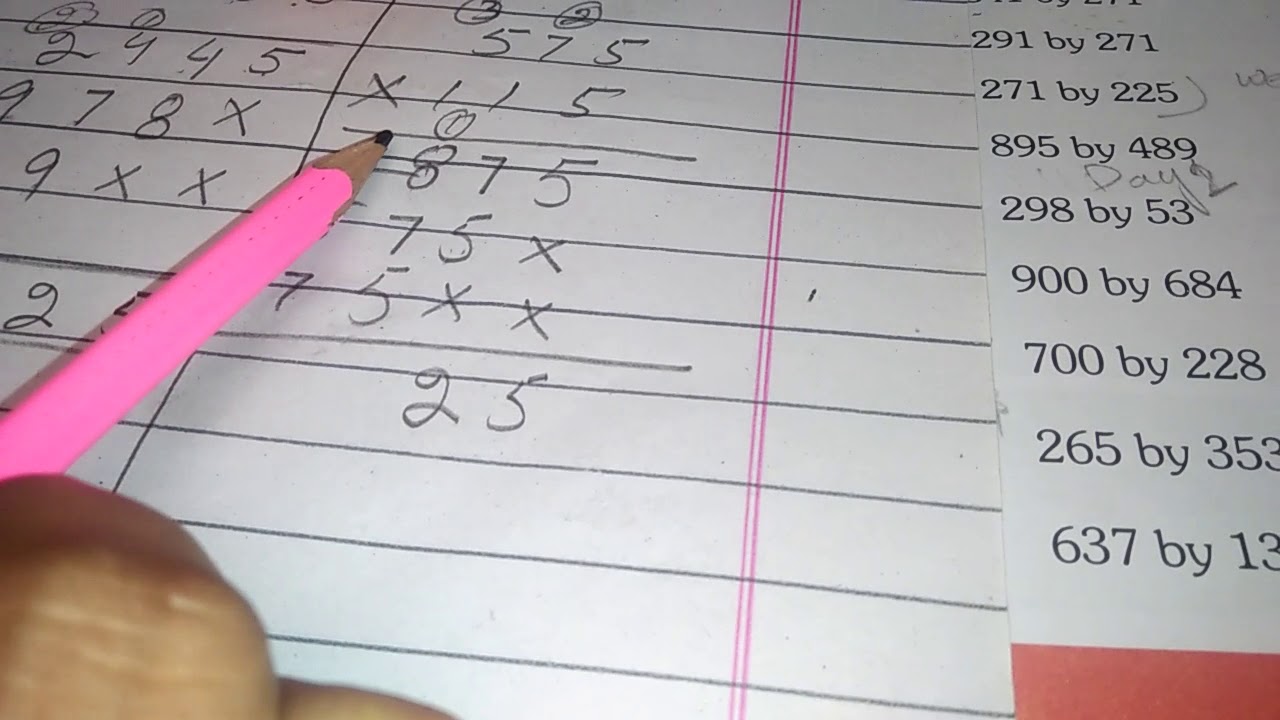 2 4 4 5
9 7 8 X
9 X X
2
3 2
5 7 5
X 1 1 5
1
8 7 5
7 5 X
7 5 X X
2 5
291 by 271
271 by 225)
895 by 489
Day 2
298 by 53
900 by 684
700 by 228
265 by 353
637 by 13